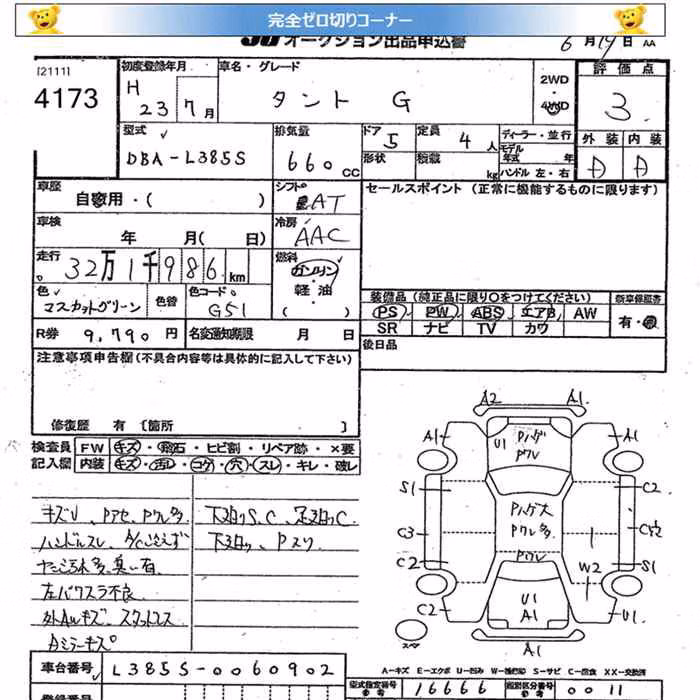 完全ゼロ切りコーナー
JU オークション出品申込書 6月19日 AA
[2111]
4173
初度登録年月 H 23 7月
車名・グレード タント G
2WD
4WD
評価点
3
外装 内装
D D
型式 DBA-L385S
排気量 660 CC
ドア 5
形状
定員 4人
積載 kg
ディーラー・並行
モデル年式 年
ハンドル 左・右
車歴 自家用・( )
シフト AT
セールスポイント (正常に機能するものに限ります)
車検 年 月( 日)
冷房 AAC
走行 32万1千986km
燃料 ガソリン・軽油・( )
色 マスカットグリーン 色替 色コードG51
装備品 (純正品に限り○をつけてください)
PS PW ABS エアB AW
SR ナビ TV カワ
新車保証書
有・無
R券 9,790円 名変通知期限 月 日
後日品
注意事項申告欄 (不具合内容等は具体的に記入して下さい)
修復歴 有 [箇所 ]
検査員記入欄
FW キズ・飛石・ヒビ割・リペア跡・×要
内装 キズ・汚レ・コゲ・穴・スレ・キレ・破レ
キズU、Pアセ、Pクレ多
ハンドルスレ、A/Cひえず
たこヤニ多、臭い有
左パワスラ不良
外AWキズ、スタッドレス
Aミラーキズ
下廻りS、C、足廻りC
下廻り、Pスリ
A2 A1
A1 U1 Pハゲ Pクレ A1
S1 Pハゲ大 C2
C3 Pクレ多 C1
C2 Pクレ W2 S1
C2 U1 A1 U1
スペア A1
A-キズ E-エクボ U-凹み W-補修跡 S-サビ C-腐食 XX-交換済
車台番号 L385S-0060902
型式指定番号 16666 類別区分番号 0011